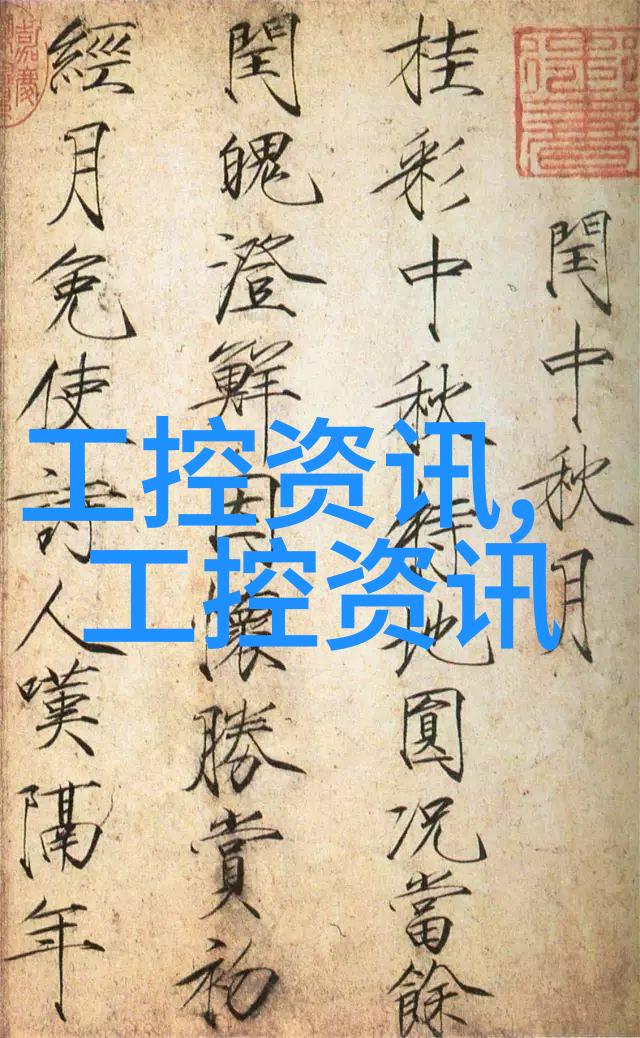 閏中秋月
桂彩中秋特地圓况當餘
閏魄澄鮮因懷勝賞初
經月免使詩人嘆隔年
工控资讯,
工控资讯